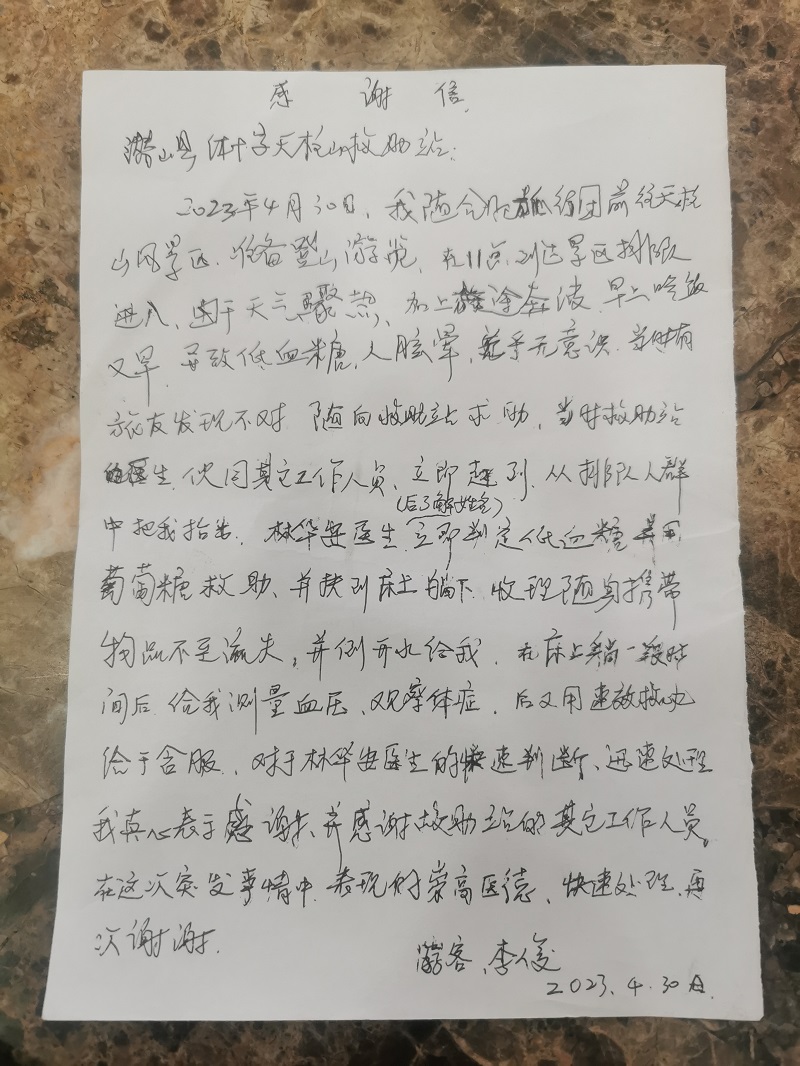 感谢信
潜山县 体十字天柱山救助站:
2023年4月30日、我随合肥旅行团前往天柱
山风景区.准备登山游览、在11点到达景区排队
进入、由于天气骤热、加上旅途奔波.早上吃饭
又早.导致低血糖、人眩晕、几乎无意识.当时有
旅友发现不对 随向救助站求助、当时救助站
医生.伙同其它工作人员、立即赶到.从排队人群
中把我抬出.林华安医生(后了解姓名)立即判定低血糖并用
葡萄糖救助、并扶到床上躺下.收理随身携带
物品不至流失,并倒开水给我.在床上躺一段时
间后.给我测量血压、观察体症.后又用速效救心丸
给于含服.对于林华安医生的快速判断、迅速处理
我真心表示感谢、并感谢救助站的其它工作人员。
在这次突发事情中.表现的崇高医德、快速处理.再
次谢谢.
游客、李俊
2023.4.30日.